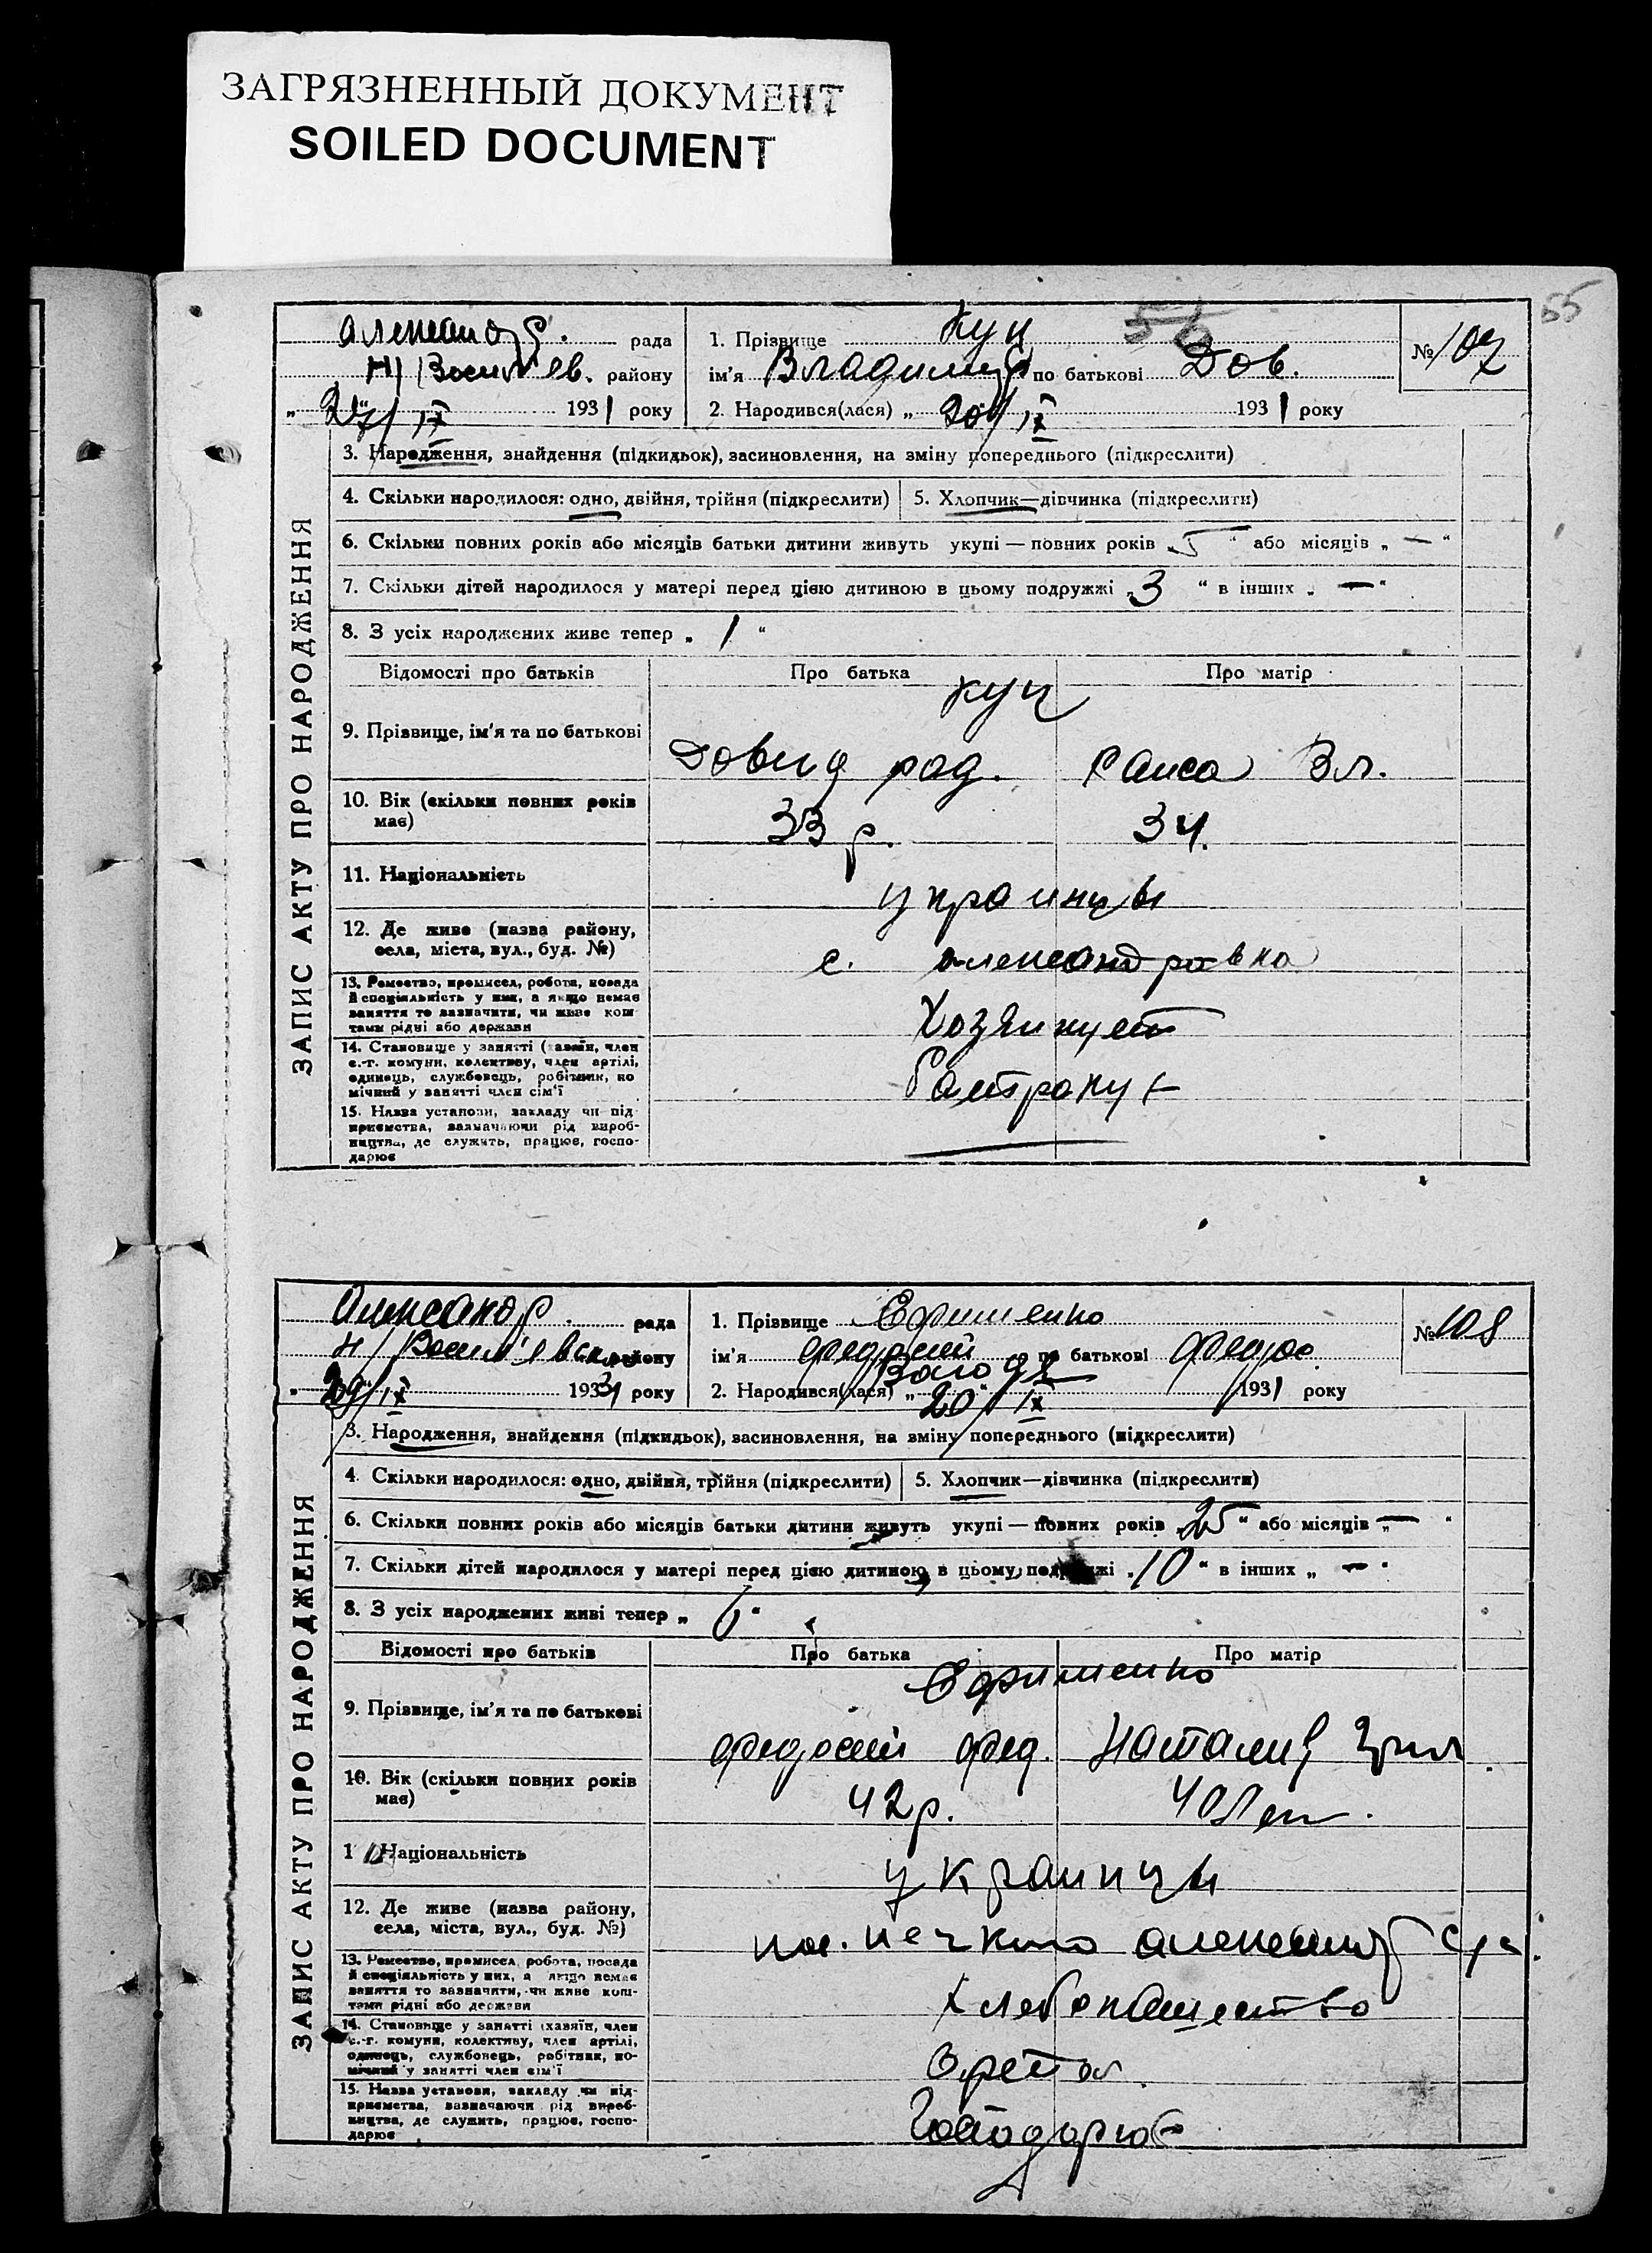 ЗАГРЯЗНЕННЫЙ ДОКУМЕНТ
SOILED DOCUMENT
55
56
ЗАПИС АКТУ ПРО НАРОДЖЕННЯ
Александр. рада
Н/Васильев. району
„ 27/IX 1931 року
1. Прізвище Куц
ім'я Владимир по батькові Дов.
2. Народився(лася) „ 20/IX 1931 року
№ 107
3. Народження, знайдення (підкидьок), засиновлення, на зміну попереднього (підкреслити)
4. Скільки народилося: одно, двійня, трійня (підкреслити)
5. Хлопчик—дівчинка (підкреслити)
6. Скільки повних років або місяців батьки дитини живуть укупі — повних років „ 5 “ або місяців „ — “
7. Скільки дітей народилося у матері перед цією дитиною в цьому подружжі „ 3 “ в інших „ — “
8. З усіх народжених живе тепер „ 1 “
Відомості про батьків Про батька Про матір
Куц
9. Прізвище, ім'я та по батькові
Довид Раиса Вл.
10. Вік (скільки повних років
має)
33 р. 34.
11. Національність
украинцы
12. Де живе (назва району,
села, міста, вул., буд. №)
с. Александровка
13. Ремество, промисел, робота, посада
й спеціяльність у них, а якщо немає
заняття то зазначити, чи живе кош-
тами рідні або держави
Хозяинует
14. Становище у занятті (хазяїн, член
с.-г. комуни, колективу, член артілі,
одинець, службовець, робітник, по-
мічний у занятті член сім'ї
15. Назва установи, закладу чи під-
приємства, зазначаючи рід вироб-
ництва, де служить, працює, госпо-
дарює
ЗАПИС АКТУ ПРО НАРОДЖЕННЯ
Александр. рада
Н/Васильевск. району
„ 29/IX 1931 року
1. Прізвище Ефименко
ім'я Федосий по батькові Федос.
2. Народився(лася) „ 20“ IX 1931 року
№ 108
3. Народження, знайдення (підкидьок), засиновлення, на зміну попереднього (підкреслити)
4. Скільки народилося: одно, двійня, трійня (підкреслити)
5. Хлопчик—дівчинка (підкреслити)
6. Скільки повних років або місяців батьки дитини живуть укупі — повних років „ 25 “ або місяців „ — “
7. Скільки дітей народилося у матері перед цією дитиною в цьому подружжі „ 10 “ в інших „ — “
8. З усіх народжених живі тепер „ 6 “
Відомості про батьків Про батька Про матір
Ефименко
9. Прізвище, ім'я та по батькові
Федосий Фед. Наталия
10. Вік (скільки повних років
має)
42 р. 40 лет.
11. Національність
украинцы
12. Де живе (назва району,
села, міста, вул., буд. №)
13. Ремество, промисел, робота, посада
й спеціяльність у них, а якщо немає
заняття то зазначити, чи живе кош-
тами рідні або держави
Хлебопашество
14. Становище у занятті (хазяїн, член
с.-г. комуни, колективу, член артілі,
одинець, службовець, робітник, по-
мічний у занятті член сім'ї
15. Назва установи, закладу чи під-
приємства, зазначаючи рід вироб-
ництва, де служить, працює, госпо-
дарює
Господарює